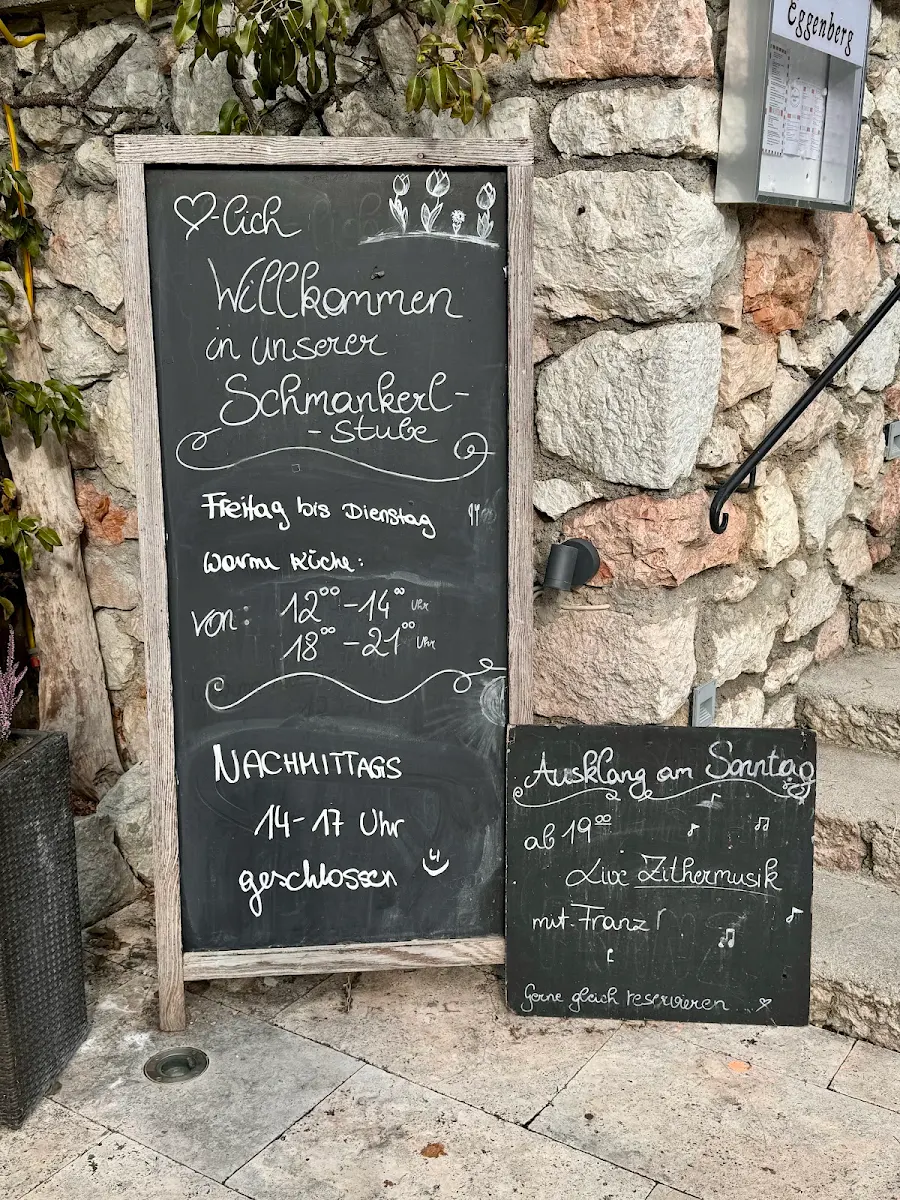 ♡-lich
Willkommen
in unserer
Schmankerl-
-stube
Freitag bis Dienstag
warme Küche:
von: 12⁰⁰-14⁰⁰ Uhr
18⁰⁰-21⁰⁰ Uhr
NACHMITTAGS
14-17 Uhr
geschlossen
Eggenberg
Ausklang am Sonntag
ab 19⁰⁰
Live Zithermusik
mit Franz!
Gerne gleich reservieren